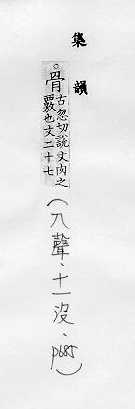 集韻
○骨古忽切說文肉之
覈也文二十七
(入聲、十一沒、p685)